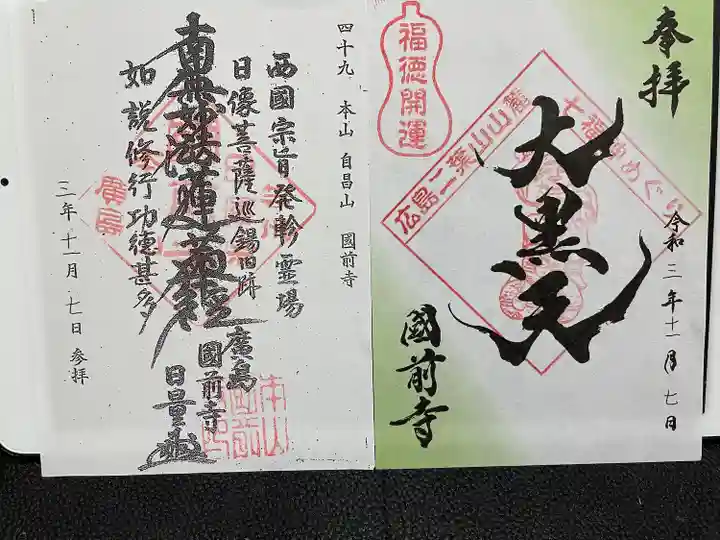 奉拝
七福神めぐり
広島二葉山山麓
福徳開運
大黒天
令和三年十一月七日
國前寺
四十九 本山 自昌山 國前寺
西國宗旨発軫霊場
日像菩薩巡錫旧跡
廣島
國前寺
南無妙法蓮華経
日量
如説修行功徳甚多
三年十一月七日参拝
廣島
本山